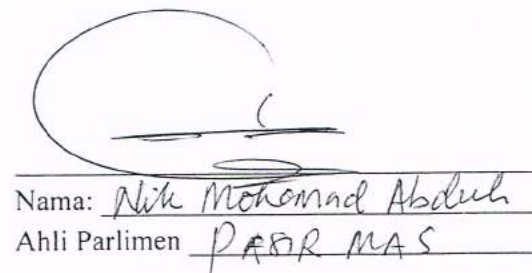 Nama: Nik Mohamad Abduh
Ahli Parlimen PASIR MAS